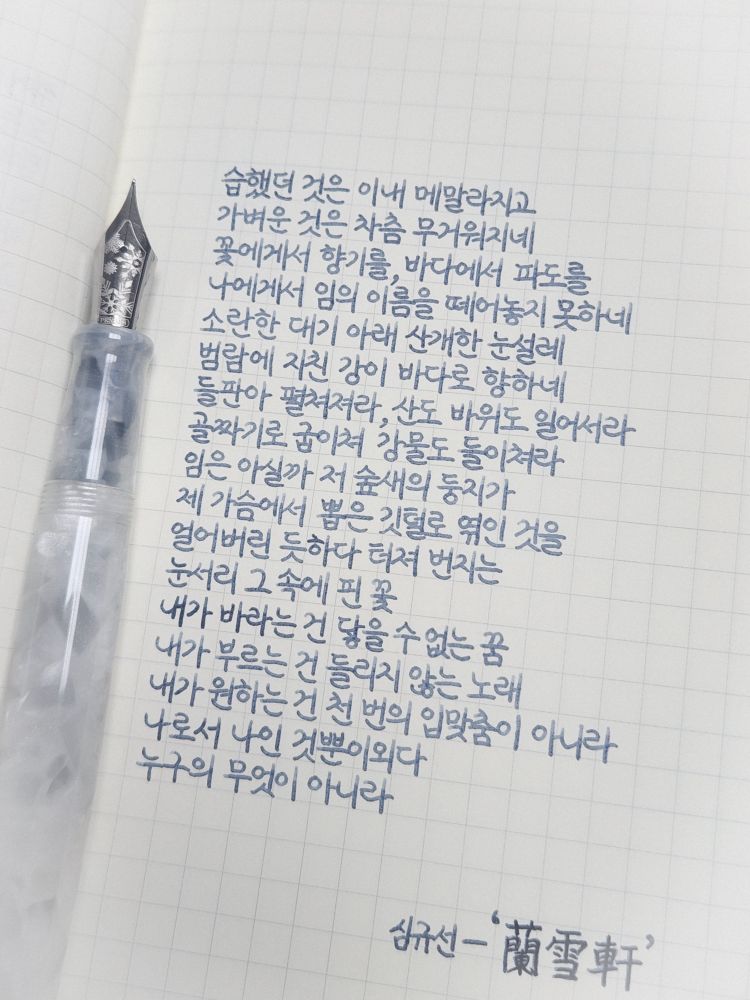 습했던 것은 이내 메말라지고
가벼운 것은 차츰 무거워지네
꽃에게서 향기를, 바다에서 파도를
나에게서 임의 이름을 떼어놓지 못하네
소란한 대기 아래 산개한 눈설레
범람에 지친 강이 바다로 향하네
들판아 펼쳐져라, 산도 바위도 일어서라
골짜기로 굽이쳐 강물도 돌이쳐라
임은 아실까 저 숲새의 둥지가
제 가슴에서 뽑은 깃털로 엮인 것을
얼어버린 듯하다 터져 번지는
눈서리 그 속에 핀 꽃
내가 바라는 건 닿을 수 없는 꿈
내가 부르는 건 들리지 않는 노래
내가 원하는 건 천 번의 입맞춤이 아니라
나로서 나인 것뿐이외다
누구의 무엇이 아니라
심규선 - '蘭雪軒'